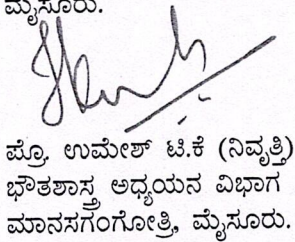 ಮೈಸೂರು.
ಪ್ರೊ. ಉಮೇಶ್ ಟಿ.ಕೆ (ನಿವೃತ್ತಿ)
ಭೌತಶಾಸ್ತ್ರ ಅಧ್ಯಯನ ವಿಭಾಗ
ಮಾನಸಗಂಗೋತ್ರಿ, ಮೈಸೂರು.